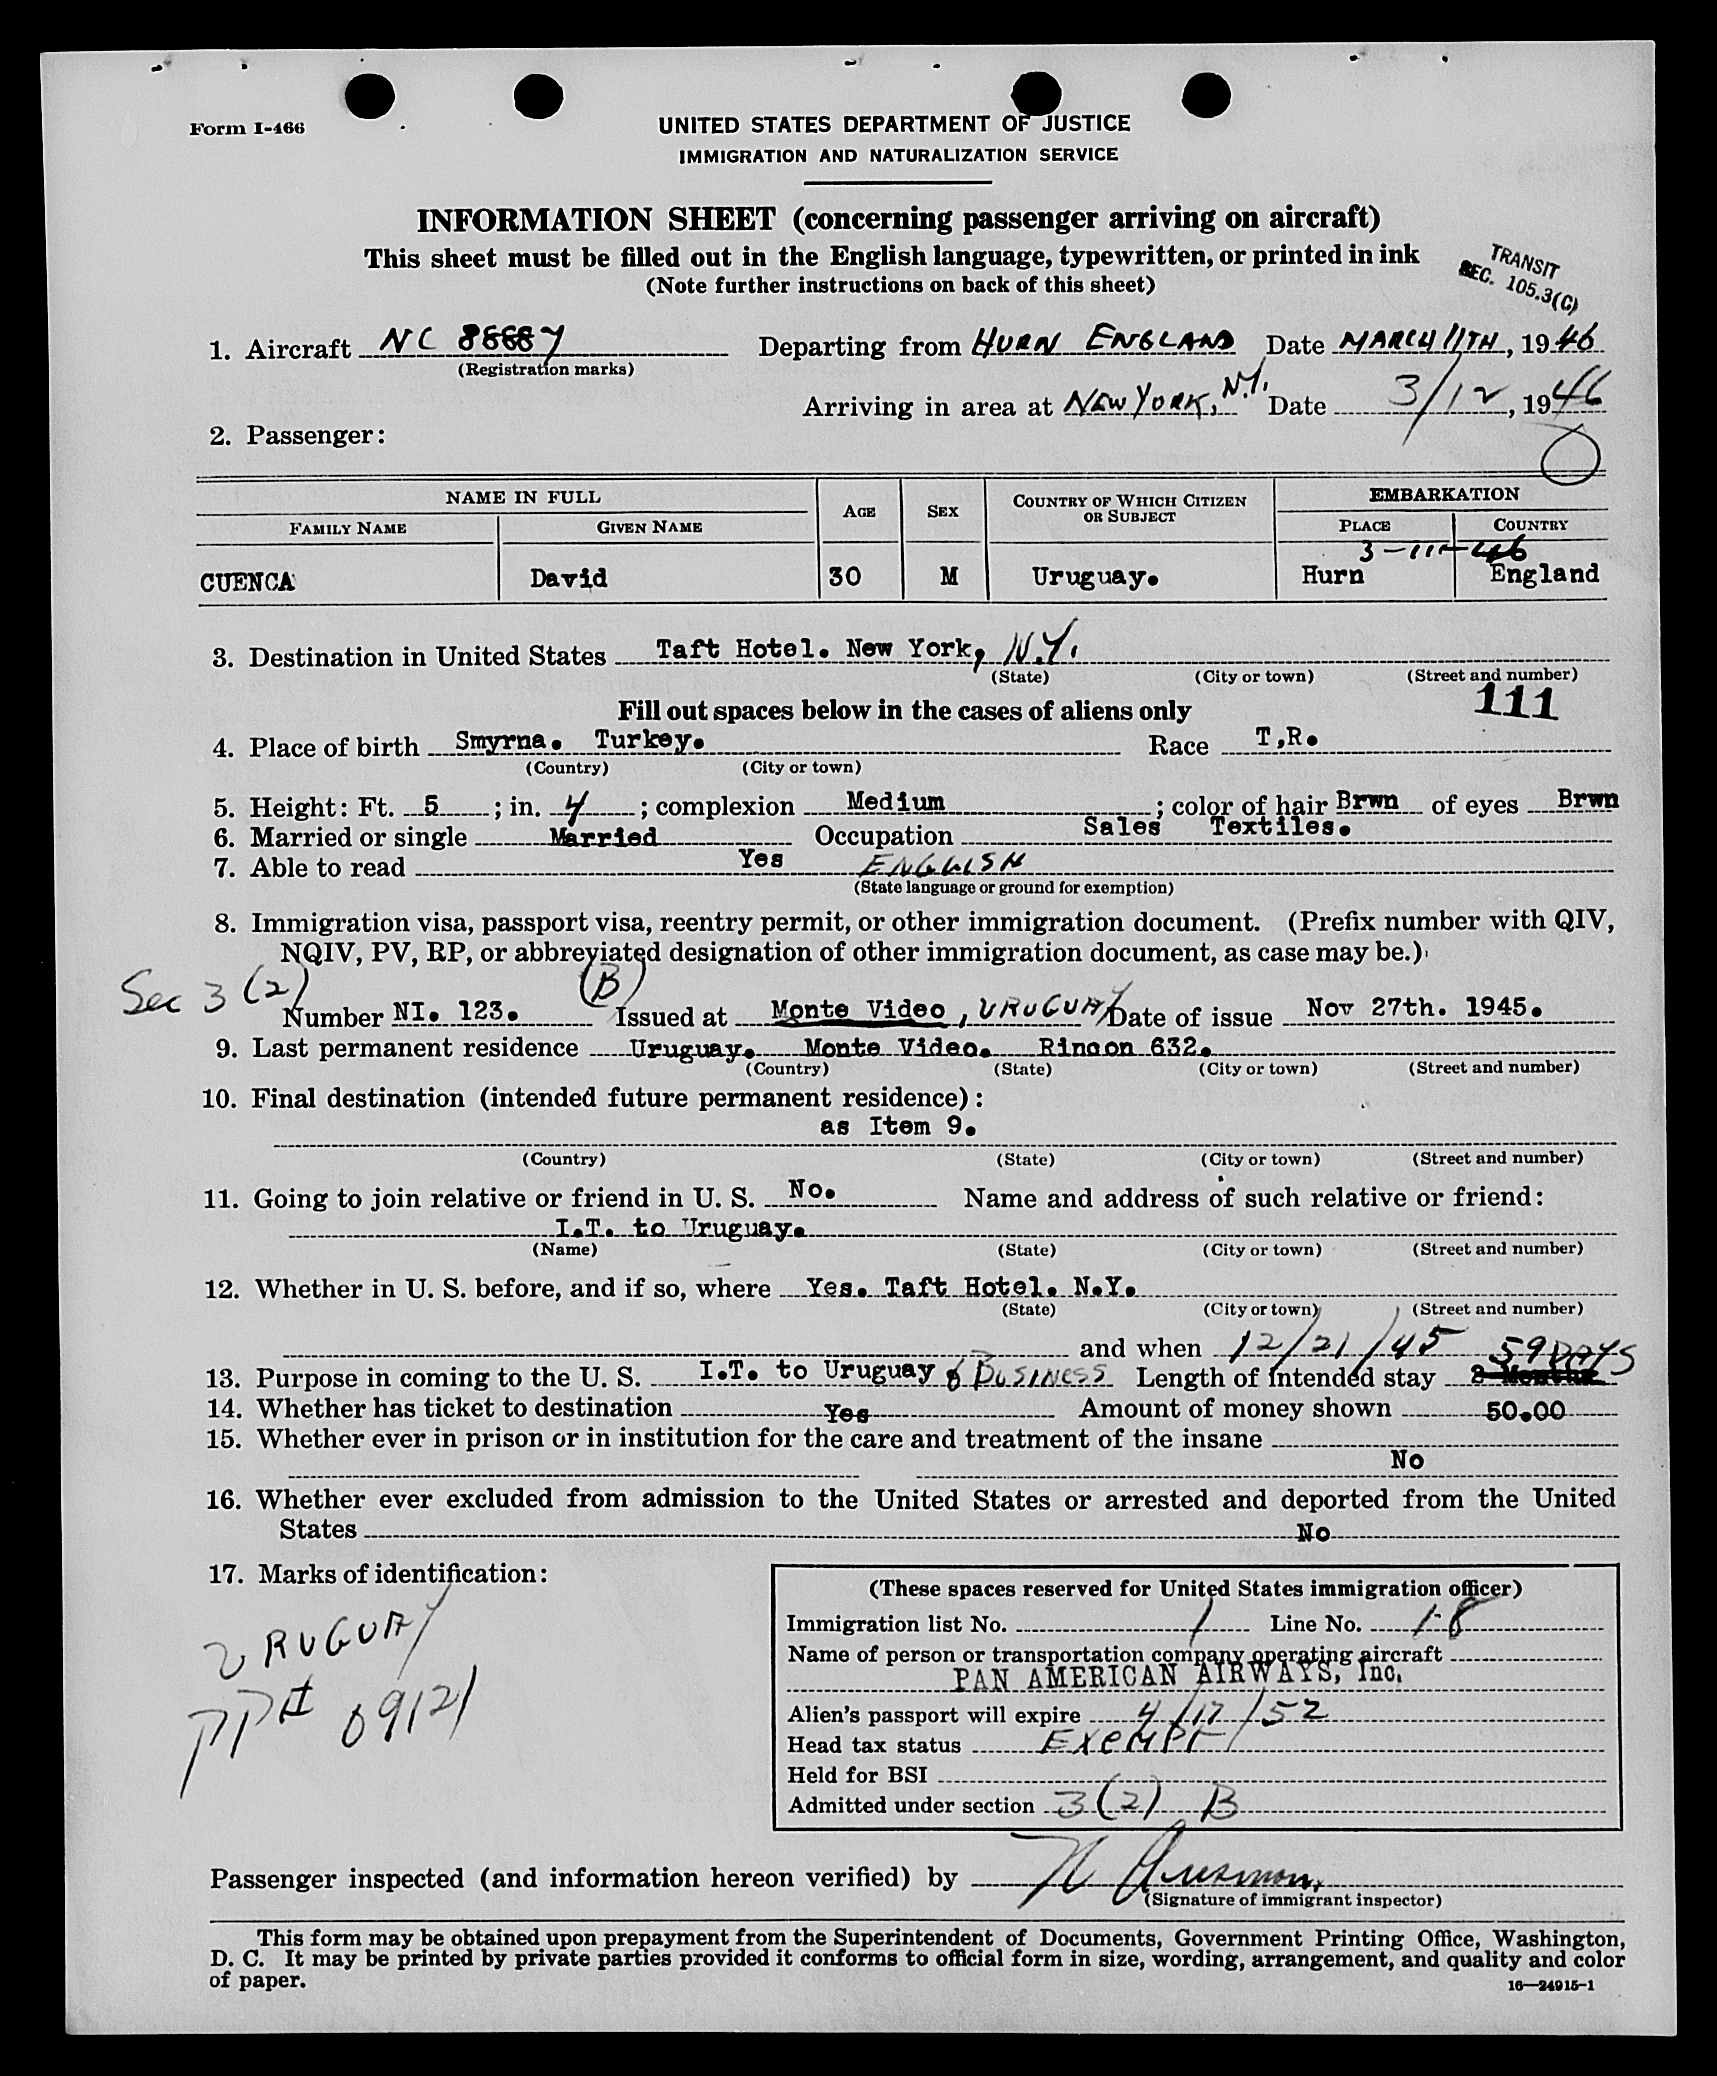 Form I-466
UNITED STATES DEPARTMENT OF JUSTICE
IMMIGRATION AND NATURALIZATION SERVICE
INFORMATION SHEET (concerning passenger arriving on aircraft)
This sheet must be filled out in the English language, typewritten, or printed in ink
(Note further instructions on back of this sheet)
TRANSIT
SEC. 105.3(C)
1. Aircraft NC 88887 Departing from HURN ENGLAND Date MARCH 11TH, 1946
(Registration marks)
Arriving in area at NEW YORK, N.Y. Date 3/12, 1946
2. Passenger:
NAME IN FULL AGE SEX COUNTRY OF WHICH CITIZEN OR SUBJECT EMBARKATION
FAMILY NAME GIVEN NAME PLACE COUNTRY
3-11-46
CUENCA David 30 M Uruguay. Hurn England
3. Destination in United States Taft Hotel. New York, N.Y.
(State) (City or town) (Street and number)
111
Fill out spaces below in the cases of aliens only
4. Place of birth Smyrna. Turkey. Race T,R.
(Country) (City or town)
5. Height: Ft. 5; in. 4; complexion Medium; color of hair Brwn of eyes Brwn
6. Married or single Married Occupation Sales Textiles.
7. Able to read Yes ENGLISH
(State language or ground for exemption)
8. Immigration visa, passport visa, reentry permit, or other immigration document. (Prefix number with QIV,
NQIV, PV, RP, or abbreviated designation of other immigration document, as case may be.)
Sec 3 (2) (B)
Number NI. 123. Issued at Monte Video, URUGUAY Date of issue Nov 27th. 1945.
9. Last permanent residence Uruguay. Monte Video. Rincon 632.
(Country) (State) (City or town) (Street and number)
10. Final destination (intended future permanent residence):
as Item 9.
(Country) (State) (City or town) (Street and number)
11. Going to join relative or friend in U. S. No. Name and address of such relative or friend:
I.T. to Uruguay.
(Name) (State) (City or town) (Street and number)
12. Whether in U. S. before, and if so, where Yes. Taft Hotel. N.Y.
(State) (City or town) (Street and number)
and when 12/21/45 59 DAYS
13. Purpose in coming to the U. S. I.T. to Uruguay & BUSINESS Length of intended stay 2 Months
14. Whether has ticket to destination Yes Amount of money shown 50.00
15. Whether ever in prison or in institution for the care and treatment of the insane
No
16. Whether ever excluded from admission to the United States or arrested and deported from the United
States No
17. Marks of identification:
URUGUAY
PP# 09121
(These spaces reserved for United States immigration officer)
Immigration list No. 1 Line No. 1-8
Name of person or transportation company operating aircraft
PAN AMERICAN AIRWAYS, Inc.
Alien's passport will expire 4/17/52
Head tax status EXEMPT
Held for BSI
Admitted under section 3(2) B
Passenger inspected (and information hereon verified) by
(Signature of immigrant inspector)
This form may be obtained upon prepayment from the Superintendent of Documents, Government Printing Office, Washington,
D. C. It may be printed by private parties provided it conforms to official form in size, wording, arrangement, and quality and color
of paper.
16—24915-1